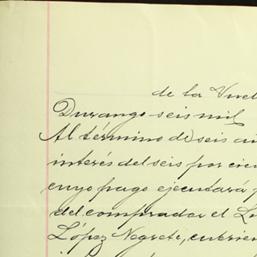 de la Vuel
Durango seis mil
Al término de seis a
interés del seis por cien
cuyo pago ejecutará
del comprador el L
López Negrete, cubrien